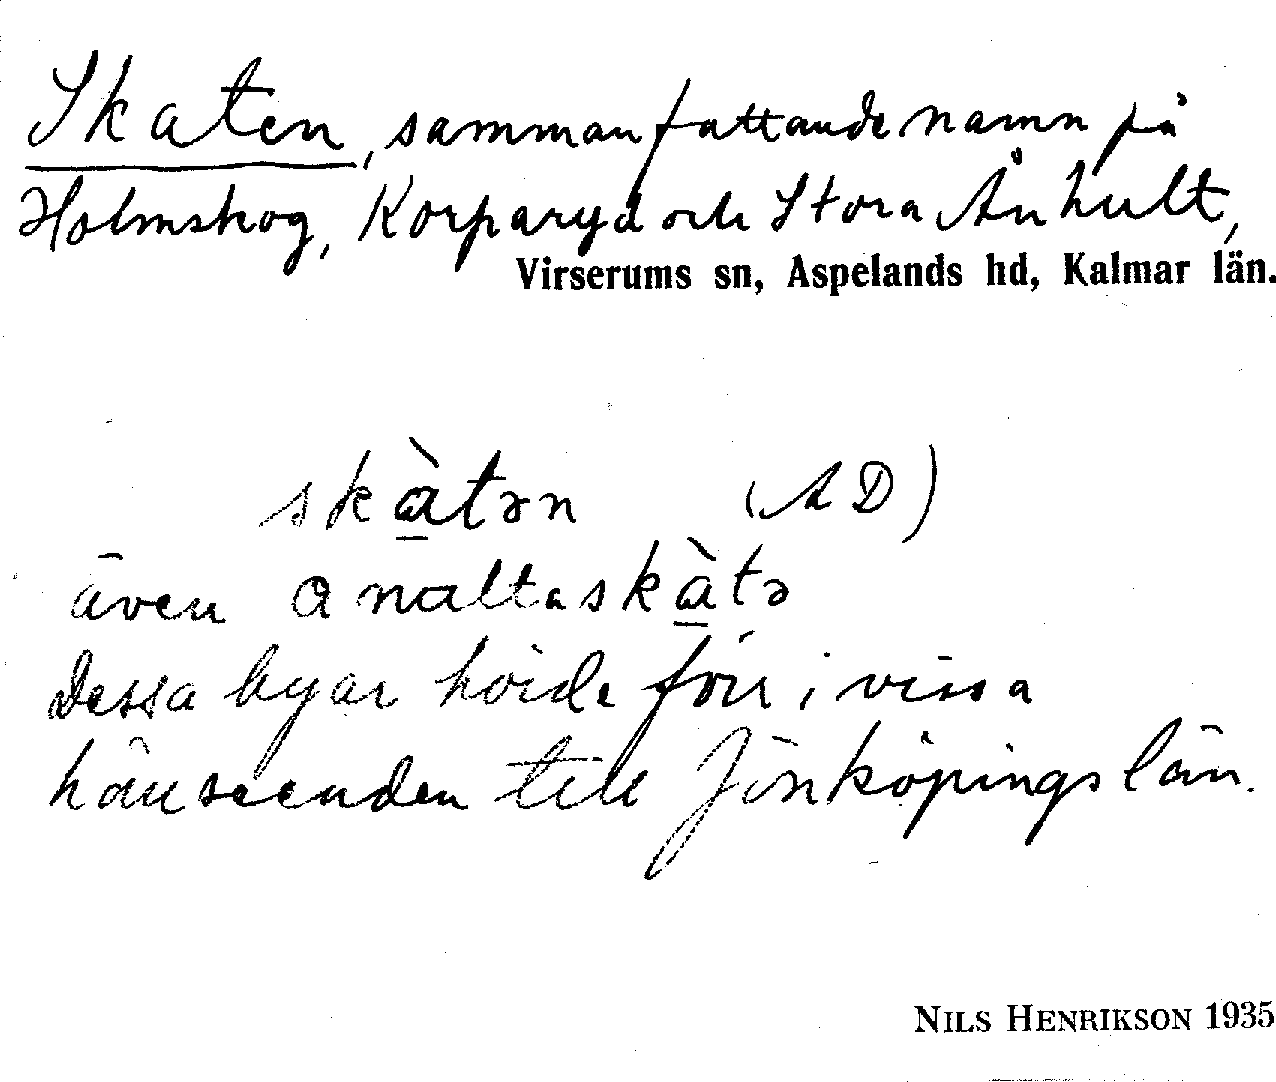 Skaten, sammanfattande namn på
Holmskog, Korparyd och Stora Ånhult,
Virserums sn, Aspelands hd, Kalmar län.
skàtən (AD)
även analtaskàtə
Dessa byar hörde förr i vissa
hänseenden till Jönköpings län.
NILS HENRIKSON 1935